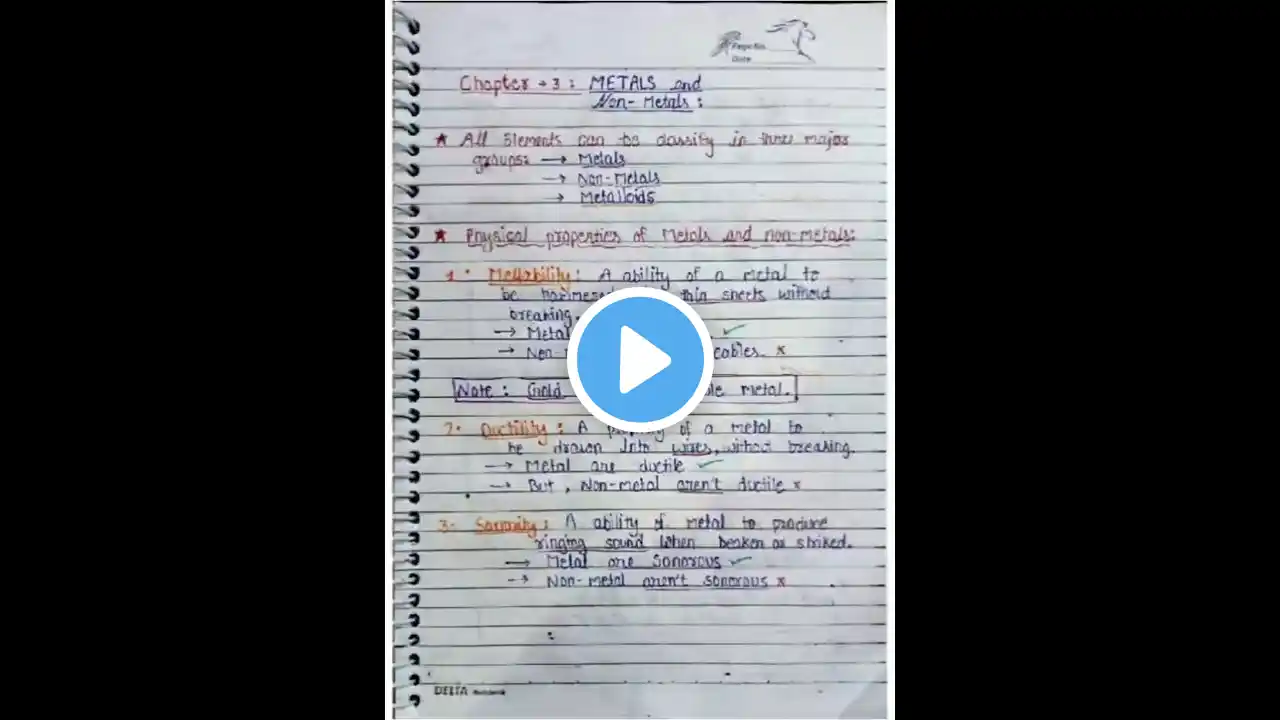 Page No.
Date
Chapter → 3 : METALS and
Non-Metals :
★ All Elements can be classify in three major
groups: → Metals
→ Non-Metals
→ Metalloids
★ Physical properties of Metals and non-metals:
1. Mellability : A ability of a metal to
be thin sheets without
breaking.
→ Metal ✓
→ Non- ×
Note : Gold metal.
2. Ductility : A of a metal to
be drawn into wires, without breaking.
→ Metal are ductile ✓
→ But, Non-metal aren't ductile ×
3. : A ability of metal to produce
ringing sound when or striked.
→ Metal are Sonorous ✓
→ Non-metal aren't sonorous ×
DELTA